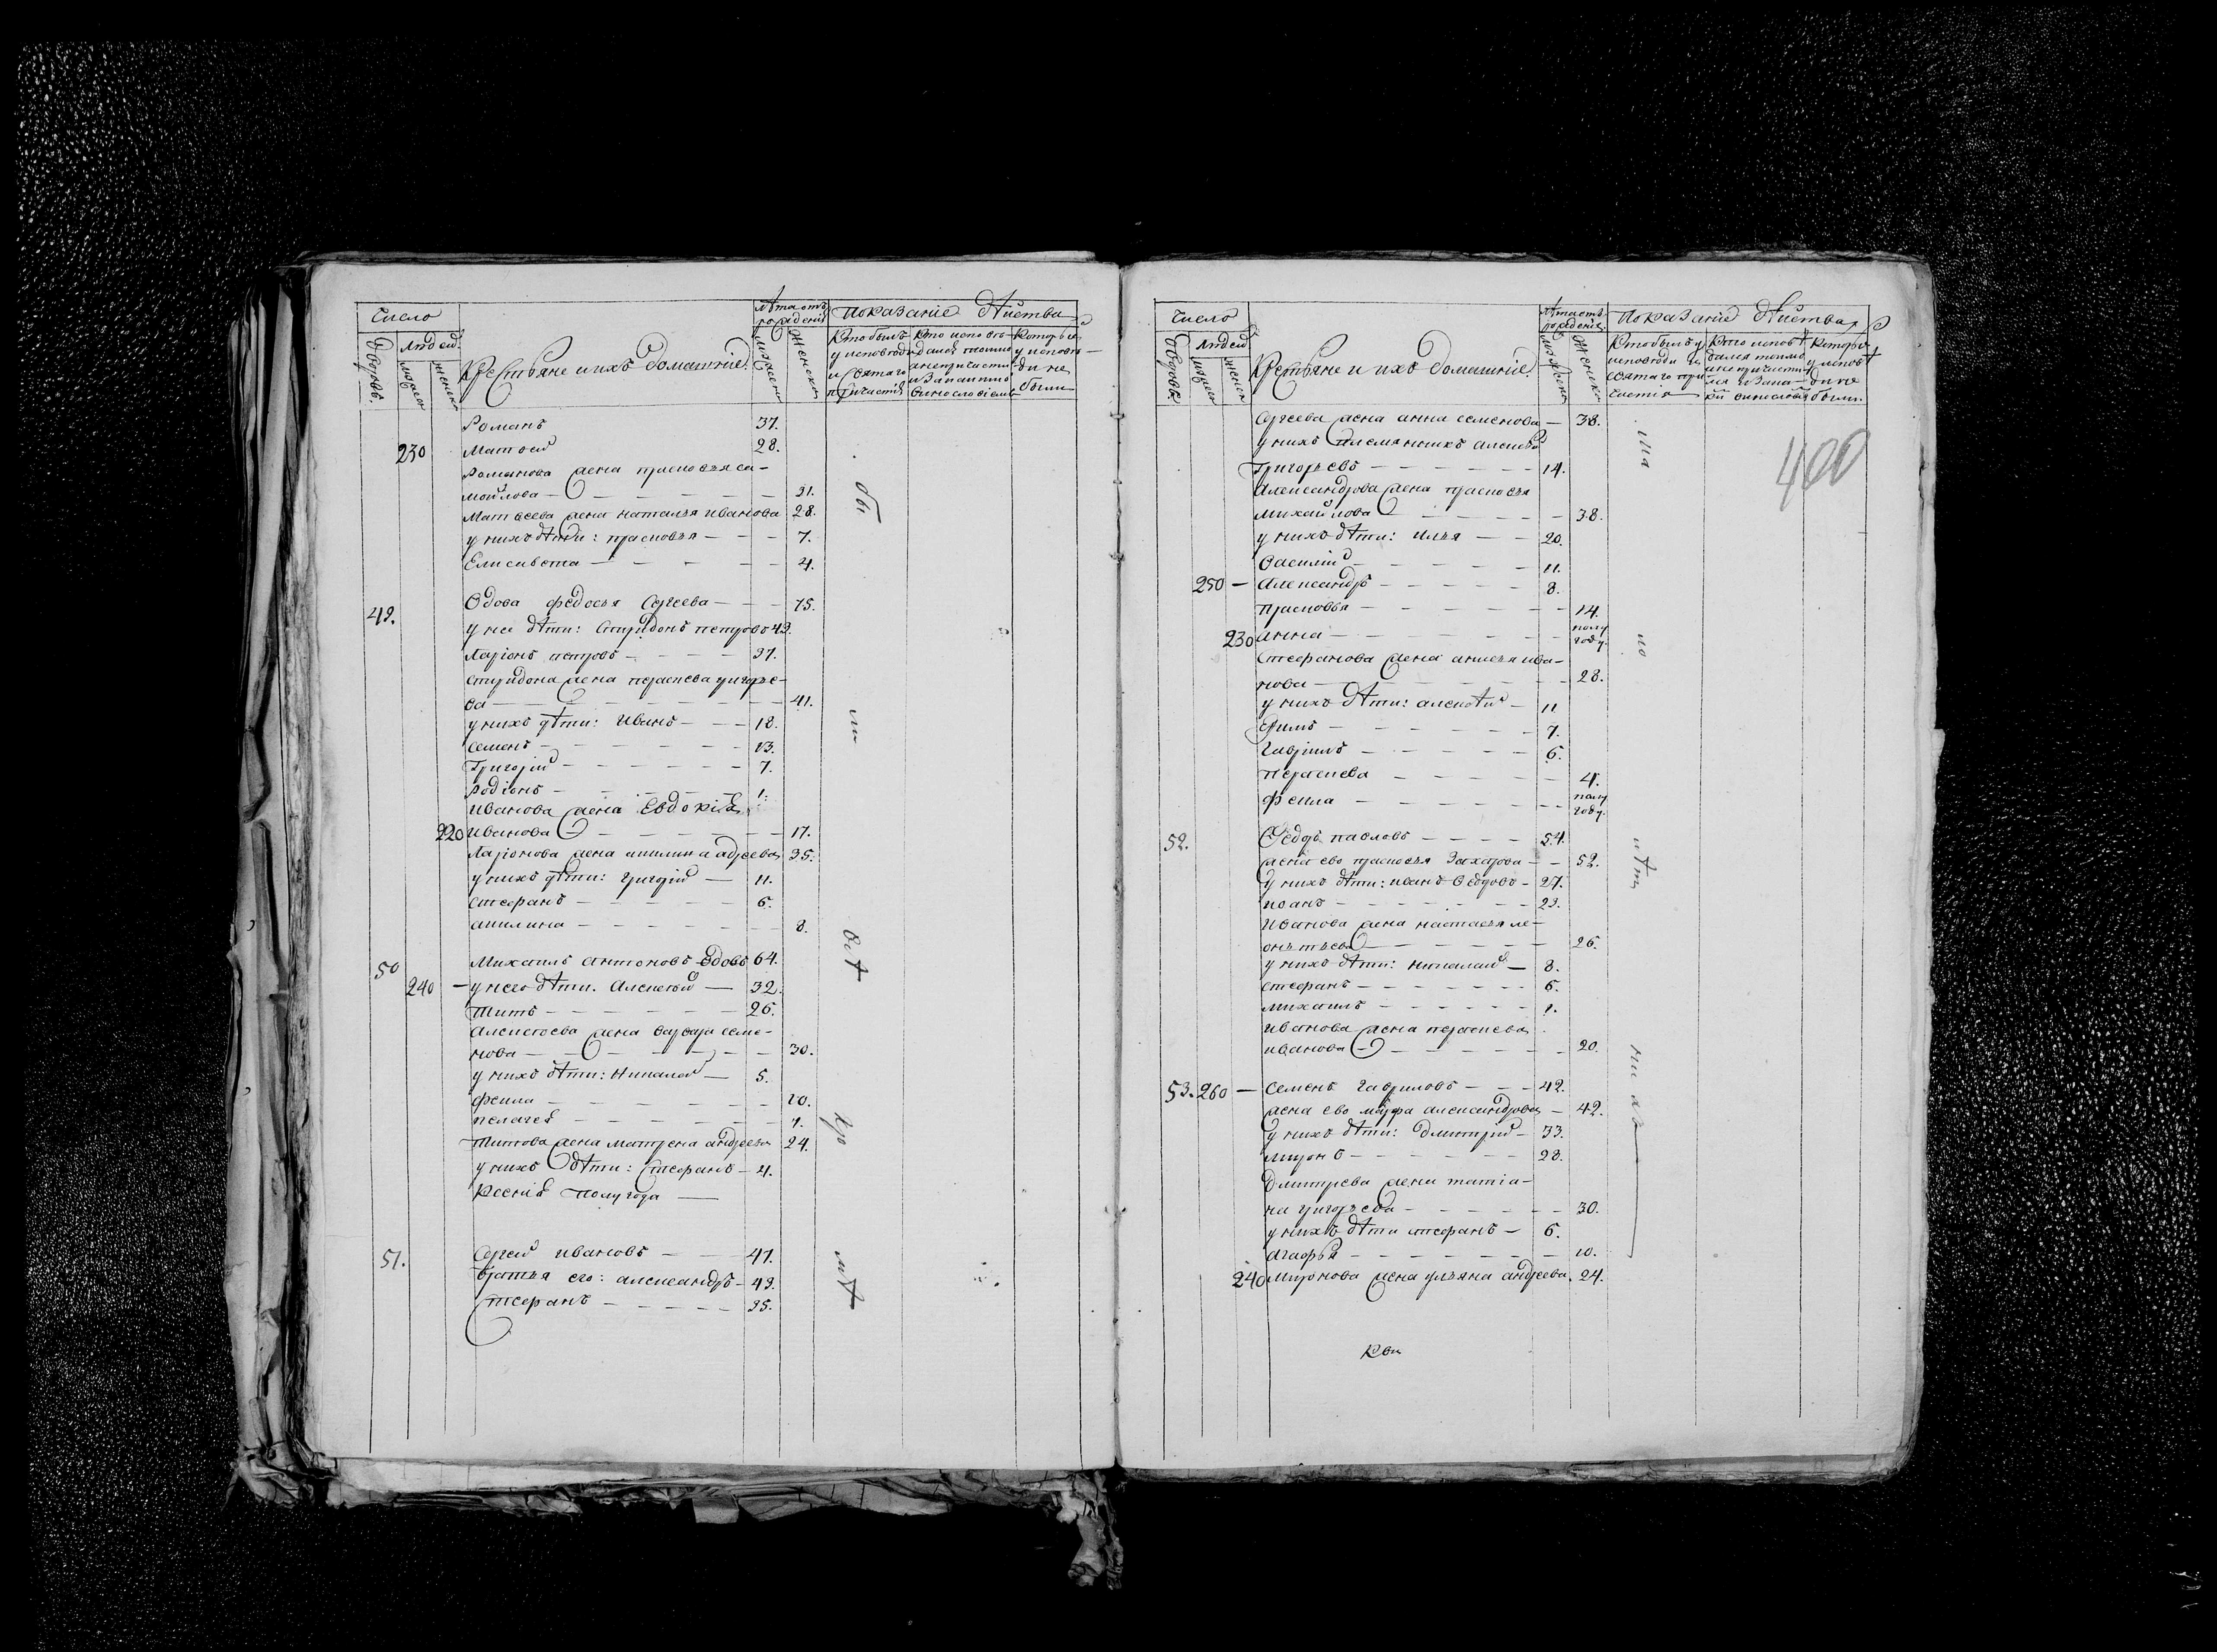 Число
Людей
Дворовъ.
мужеск
женск
Крестьяне и ихъ домашніе.
Лѣта отъ
рожденія
мужеск
женска
Показаніе дѣйства
Кто былъ
у исповѣди
и святаго
причастія
Кто испове-
дался токмо
а не причасти
Которые
у испове-
ди не
были
Романъ 37.
230 Матвей 28.
Романова жена прасковья са-
мойлова — 31.
Матвеева жена наталья иванова 28.
у нихъ дѣти: прасковья — 7.
Елисавета — 4.
49. Вдова федосья Сергеева — 75.
у нее дѣти: Спиридонъ петровъ 49.
Ларіонъ петровъ — 37.
Спиридона жена параскева григорье-
ва — 41.
у нихъ дѣти: Иванъ — 18.
Семенъ — 13.
Григорій — 7.
Родіонъ — 1.
Иванова жена Евдокія
220 Иванова — 17.
Ларіонова жена акилина адреева 35.
у нихъ дѣти: Григорій — 11.
Стефанъ — 6.
акилина — 8.
50 Михаилъ антоновъ вдовъ 64.
240 — у него дѣти. Алексѣй — 32.
Титъ — 26.
Алексеева жена варвара семе-
нова — 30.
у нихъ дѣти: Николай — 5.
фекла — 10.
пелагея — 1.
Титова жена матрена андреева 24.
у нихъ дѣти: Стефанъ — 4.
Ксенія полугода —
51. Сергей ивановъ — 47.
Братья его: александръ — 43.
Стефанъ — 35.
бы
ли
всѣ
кро
мѣ
Число
Людей
Дворовъ
мужеск
женск
Крестьяне и ихъ домашніе.
Лѣта отъ
рожденія.
мужеска
женска
Показаніе дѣйства
Кто былъ у
исповѣди и
святаго при-
частія
Кто исповѣ
дался токмо
а не причастил
Которые
у исповѣ
ди не
были.
400
Сергеева жена анна семенова — 38.
у нихъ племянникъ алексѣй
Григорьевъ — 14.
Александрова жена прасковья
Михайлова — 38.
у нихъ дѣти: Илья — 20.
Василій — 11.
250 — Александръ — 8.
Прасковья — 14.
230 анна — полу
году.
Стефанова жена аксинья ива-
нова — 28.
у нихъ дѣти: алексѣй — 11
Ефимъ — 7.
Гавріилъ — 6.
Параскева — 4.
фекла — полу
году.
52. Ѳедоръ павловъ — 54.
жена ево прасковья Захарова — 52.
у нихъ дѣти: иванъ Ѳедоровъ — 27.
иванъ — 23.
Иванова жена настасья ле-
онтьева — 26.
у нихъ дѣти: николай — 8.
Стефанъ — 6.
михаилъ — 1.
Иванова жена параскева
иванова — 20.
53. 260 — Семенъ гавриловъ — 42.
жена ево марфа александрова — 42.
у нихъ дѣти: Дмитрій — 33.
миронъ — 28.
Дмитрева жена татіа-
на григорьева — 30.
у нихъ дѣти стефанъ — 6.
Агафья — 10.
240 миронова жена ульяна андреева. 24.
ма
ло
лѣт
ни хъ